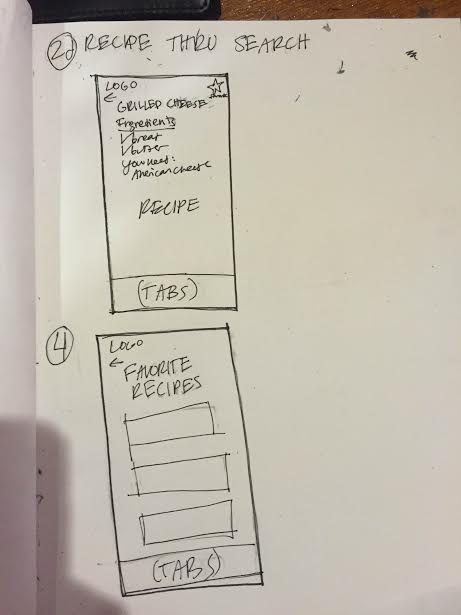 2a RECIPE THRU SEARCH
LOGO
←
GRILLED CHEESE
Ingredients
✓ bread
✓ butter
You need:
American cheese
RECIPE
(TABS)
4
LOGO
←
FAVORITE
RECIPES
(TABS)